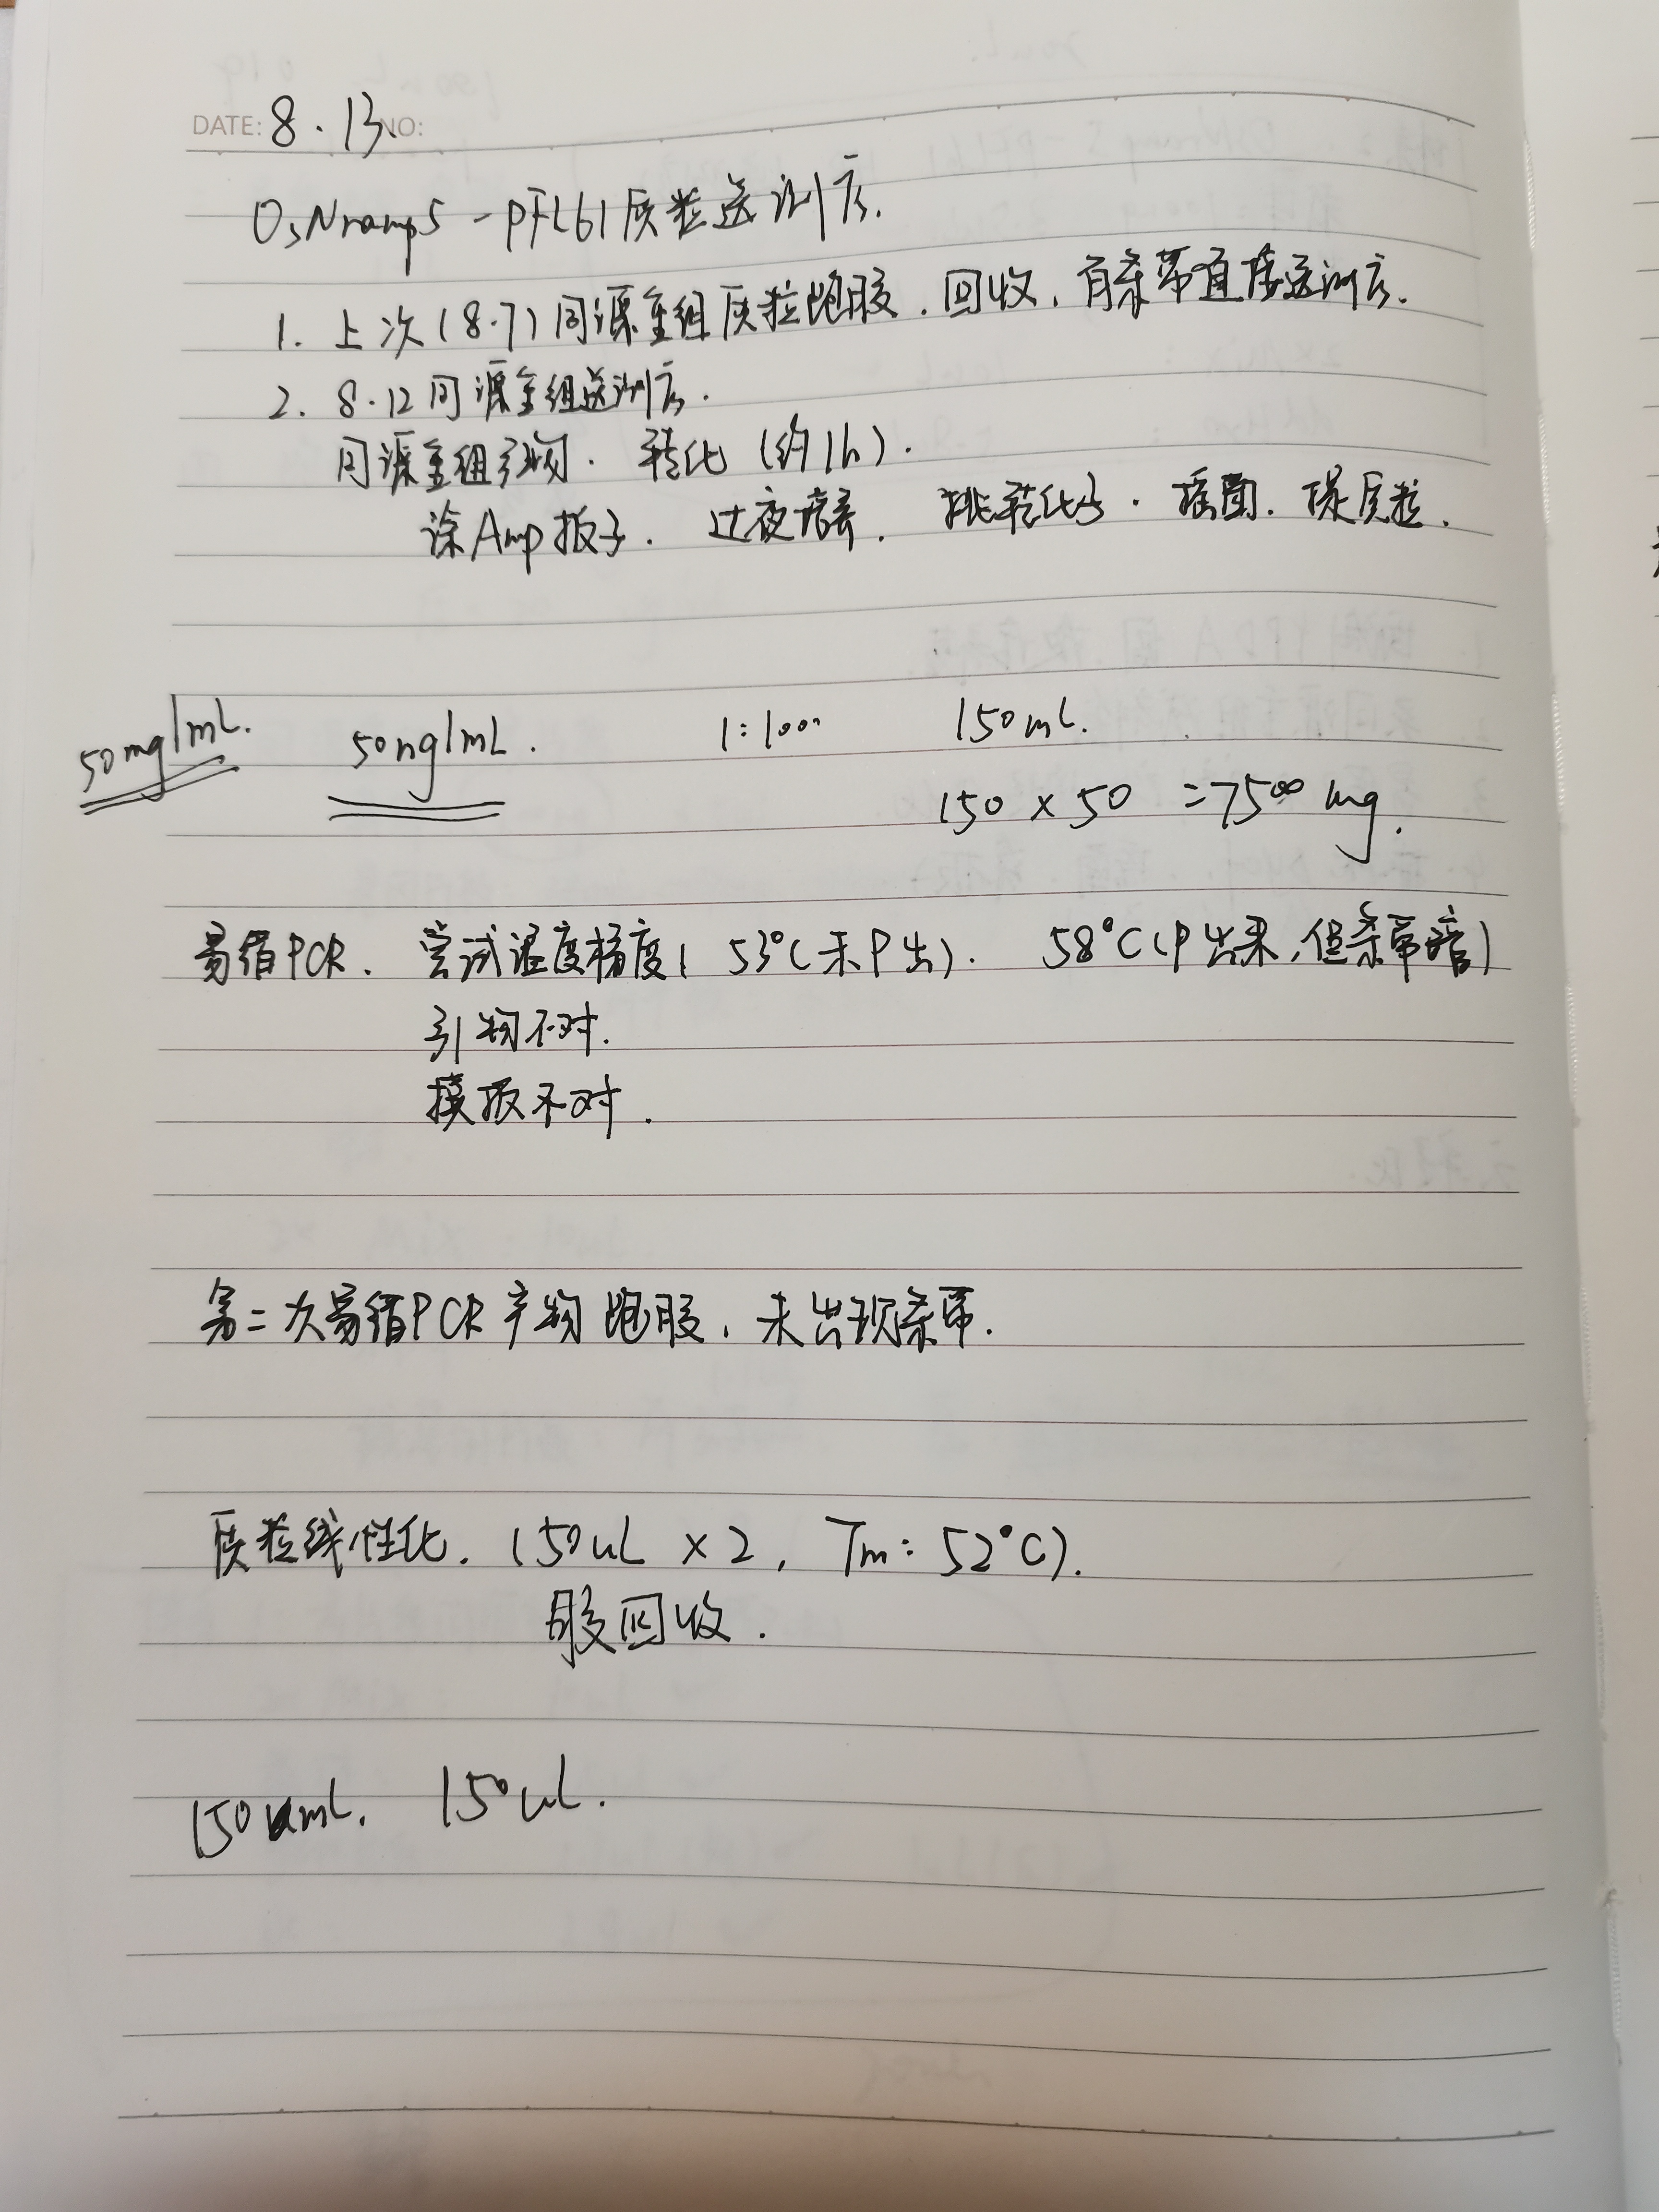 DATE: 8.13. NO:
OsNramp5-pFL61质粒送测序.
1. 上次(8.7)同源重组质粒跑胶.回收,有条带直接送测序.
2. 8.12同源重组送测序.
同源重组引物. 转化(约1h).
涂Amp板子. 过夜培养. 挑转化子. 摇菌. 提质粒.
50mg/mL. 50ng/mL. 1:1000 150mL.
150×50=7500 mg.
易错PCR. 尝试温度梯度( 53°C(未P出). 58°C(P出来,但条带暗)
引物不对.
模板不对.
第二次易错PCR产物跑胶,未出现条带.
质粒线性化.(50uL×2, Tm:52°C).
胶回收.
150 mL. 150uL.